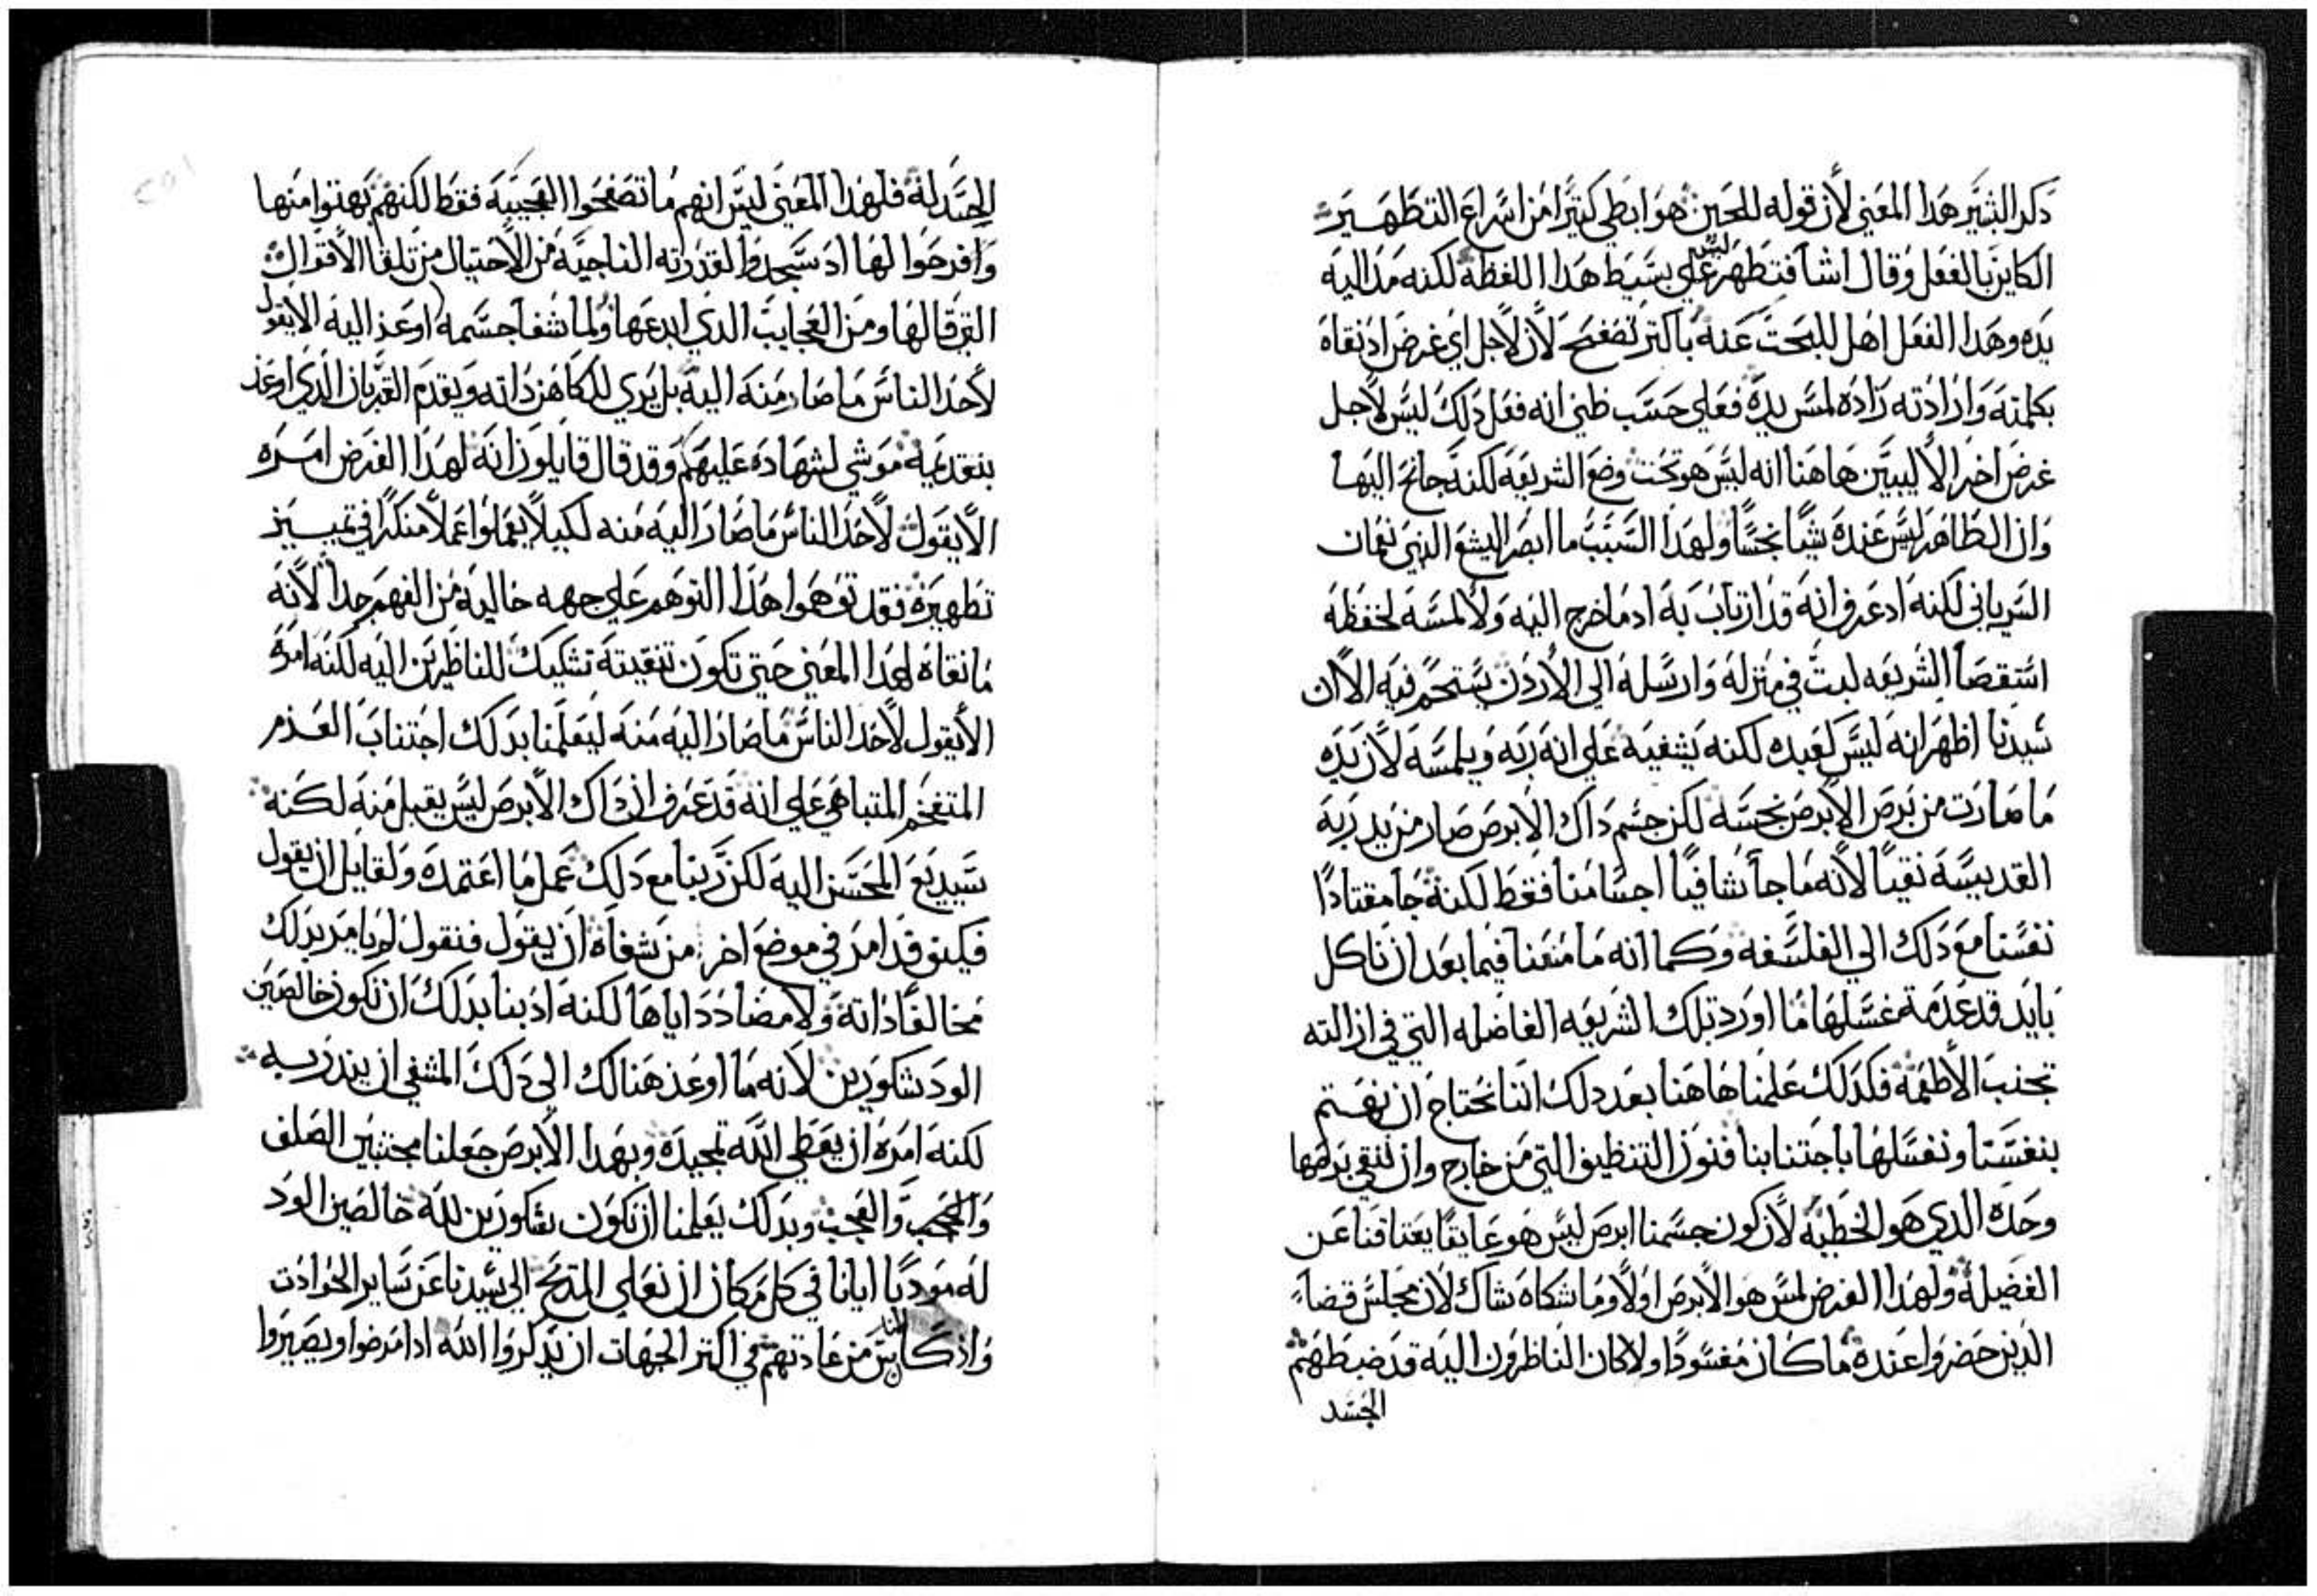 ذكر البشير هذا المعني لأن قوله للحين هو ابطي كثيرًا من اسراع التطهير
الكاين بالفعل وقال اشا فتطهر ليس علي بسيط هذا اللفظه لكنه مد اليه
يده وهذا الفعل اهل للبحث عنه باكثر تصفح لأن لأجل اي غرض اذ نقاه
بكلمته وارادته زاده لمس يده فعلي حسب ظني انه فعل ذلك ليس لأجل
غرض اخر الا ليبين هاهنا انه ليس هو تحت وضع الشريعه لكنه جانح اليها
وان الطاهر ليس عنده شيًا نجسًا ولهذا السبب ما ابصر اليشع النبي نعمان
السرياني لكنه اد عرف انه قد ارتاب به اد ما خرج اليه ولا لمسه لحفظه
استقصا الشريعه لبث في منزله وارسله الي الأردن يستحم فيه الا ان
سيدنا اظهر انه ليس كعبده لكنه يشفيه علي انه ربه ويلمسه لأن يده
ما صارت من برص الأبرص نجسه لكن جسم داك الابرص صار من يد ربه
القديسه نقيًا لأنه ما جا شافيًا اجسامنا فقط لكنه جا مقتادًا
نفسنا مع دلك الي الفلسفه وكما انه ما منعنا فيما بعد ان ناكل
بايد قد عدمة غسلها ما اورد تلك الشريعه الفاضله التي في ازالته
تجنب الأطعمه فكذلك علمنا هاهنا بعد دلك اننا نحتاج ان نهتم
بنفسنا ونغسلها باجتنابنا فنون التنظيف التي من خارج وان ننقي برصها
وحده الدي هو الخطيه لأن كون جسمنا ابرص ليس هو عايقًا يعتاقنا عن
الفضيله ولهذا الغرض لمس هو الأبرص اولًا وما شكاه شاك لأن مجلس قضاء
الذين حضروا عنده ما كان مفسودًا ولا كان الناظرون اليه قد ضبطهم
الجسد
الحسد له فلهذا المعني ليس انهم ما تصفحوا العجيبه فقط لكنهم بهتوا منها
وافرجوا لها اد سجدوا لقدرته الناجيه من الأحتيال من تلقا الأقوال
التي قالها ومن العجايب الذي ابدعها ولما شفا جسمه اوعز اليه الا يقول
لأحد الناس ما صار منه اليه بل يري للكاهن ذاته ويقدم القربان الذي اوعز
بتقديمه موسي لشهاده عليهم وقد قال قايلون انه لهذا الغرض امره
الا يقول لأحد الناس ما صار اليه منه لكيلا يعملوا عملًا منكرًا في تمييز
تطهيره فقد توهموا هذا التوهم علي جهه خاليه من الفهم جدا لأنه
ما نقاه لهذا المعني حتي تكون تنقيته تشكيك للناظرين اليه لكنه امره
الا يقول لأحد الناس ما صار اليه منه ليعلمنا بدلك اجتناب العزم
المتفخم المتباهي علي انه قد عرف ان ذاك الأبرص ليس يقبل منه لكنه
سيديع المحسن اليه لكن ربنا مع دلك عمل ما اعتمده ولقايل ان يقول
فكيف قد امر في موضع اخر من شفاه ان يقول فنقول لم يامر بدلك
مخالفًا ذاته ولا مضادد اياها لكنه ادبنا بدلك ان نكون خالصين
الود شكورين لانه ما اوعز هنالك الي دلك المشفي ان ينذر به
لكنه امره ان يعطي الله تمجيده وبهدا الأبرص جعلنا مجتنبين الصلف
والعجب والعجب وبدلك يعلمنا ان نكون شكورين لله خالصين الود
له مودبًا ايانا في كل مكان ان نعلي المديح الي سيدنا عن ساير الحوادث
واذ كان الناس من عادتهم في اكثر الجهات ان يذكروا الله ادا مرضوا ويصيروا